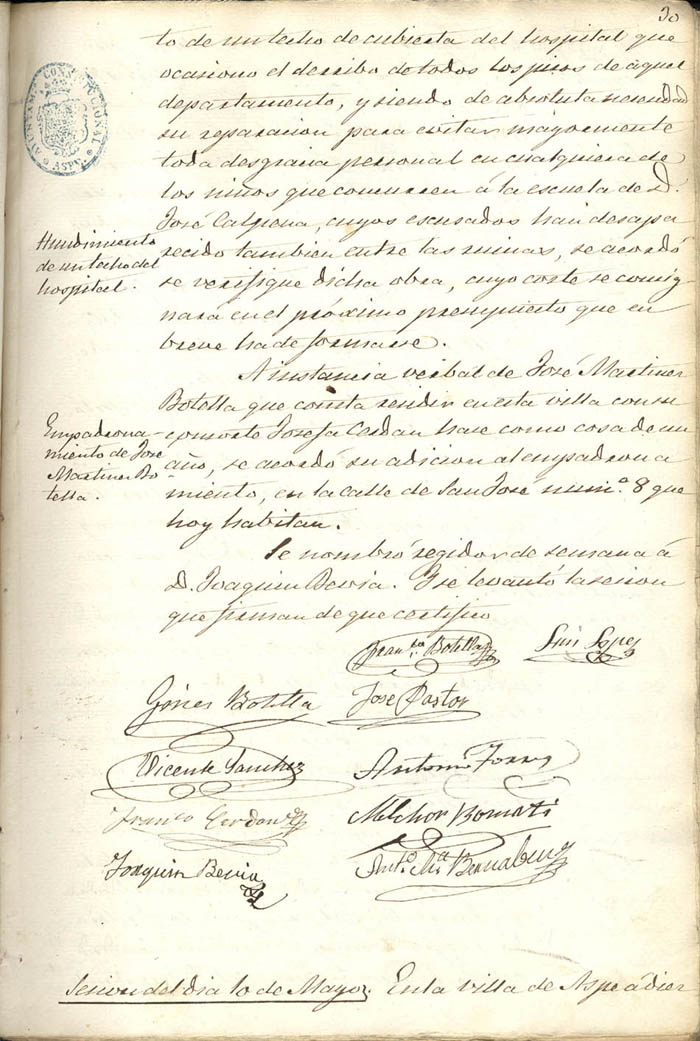 30
to de un techo de cubierta del hospital que
ocasiono el derribo de todos los pisos de aquel
departamento, y siendo de absoluta necesidad
su reparacion para evitar mayormente
toda desgracia personal en cualquiera de
los niños que concurren á la escuela de D.
José Calpena, cuyos escusados han desapa
recido tambien entre las ruinas, se acordó
se verifique dicha obra, cuyo coste se consig
nara en el próximo presupuesto que en
breve ha de formarse.
AYUNTAM. CONSTITUCIONAL
* ASPE *
Hundimiento
de un techo del
hospital.
A instancia verbal de José Martinez
Botella que consta residir en esta villa con su
consorte Josefa Cerdan hace como cosa de un
año, se acordó su adicion al empadrona
miento, en la calle de San José num.º 8 que
hoy habitan.
Empadrona-
miento de Jose
Martinez Bo-
tella.
Se nombró regidor de semana á
D. Joaquin Bevia. Y se levantó la sesion
que firman de que certifico
Fran.co Botella Luis Lopez
Gines Botella José Pastor
Vicente Sanchez Antonio Torres
Franco Cerdan Melchor Bonati
Joaquin Bevia Ant.º M.ª Bernabeu
Sesion del dia 10 de Mayo. En la villa de Aspe á diez